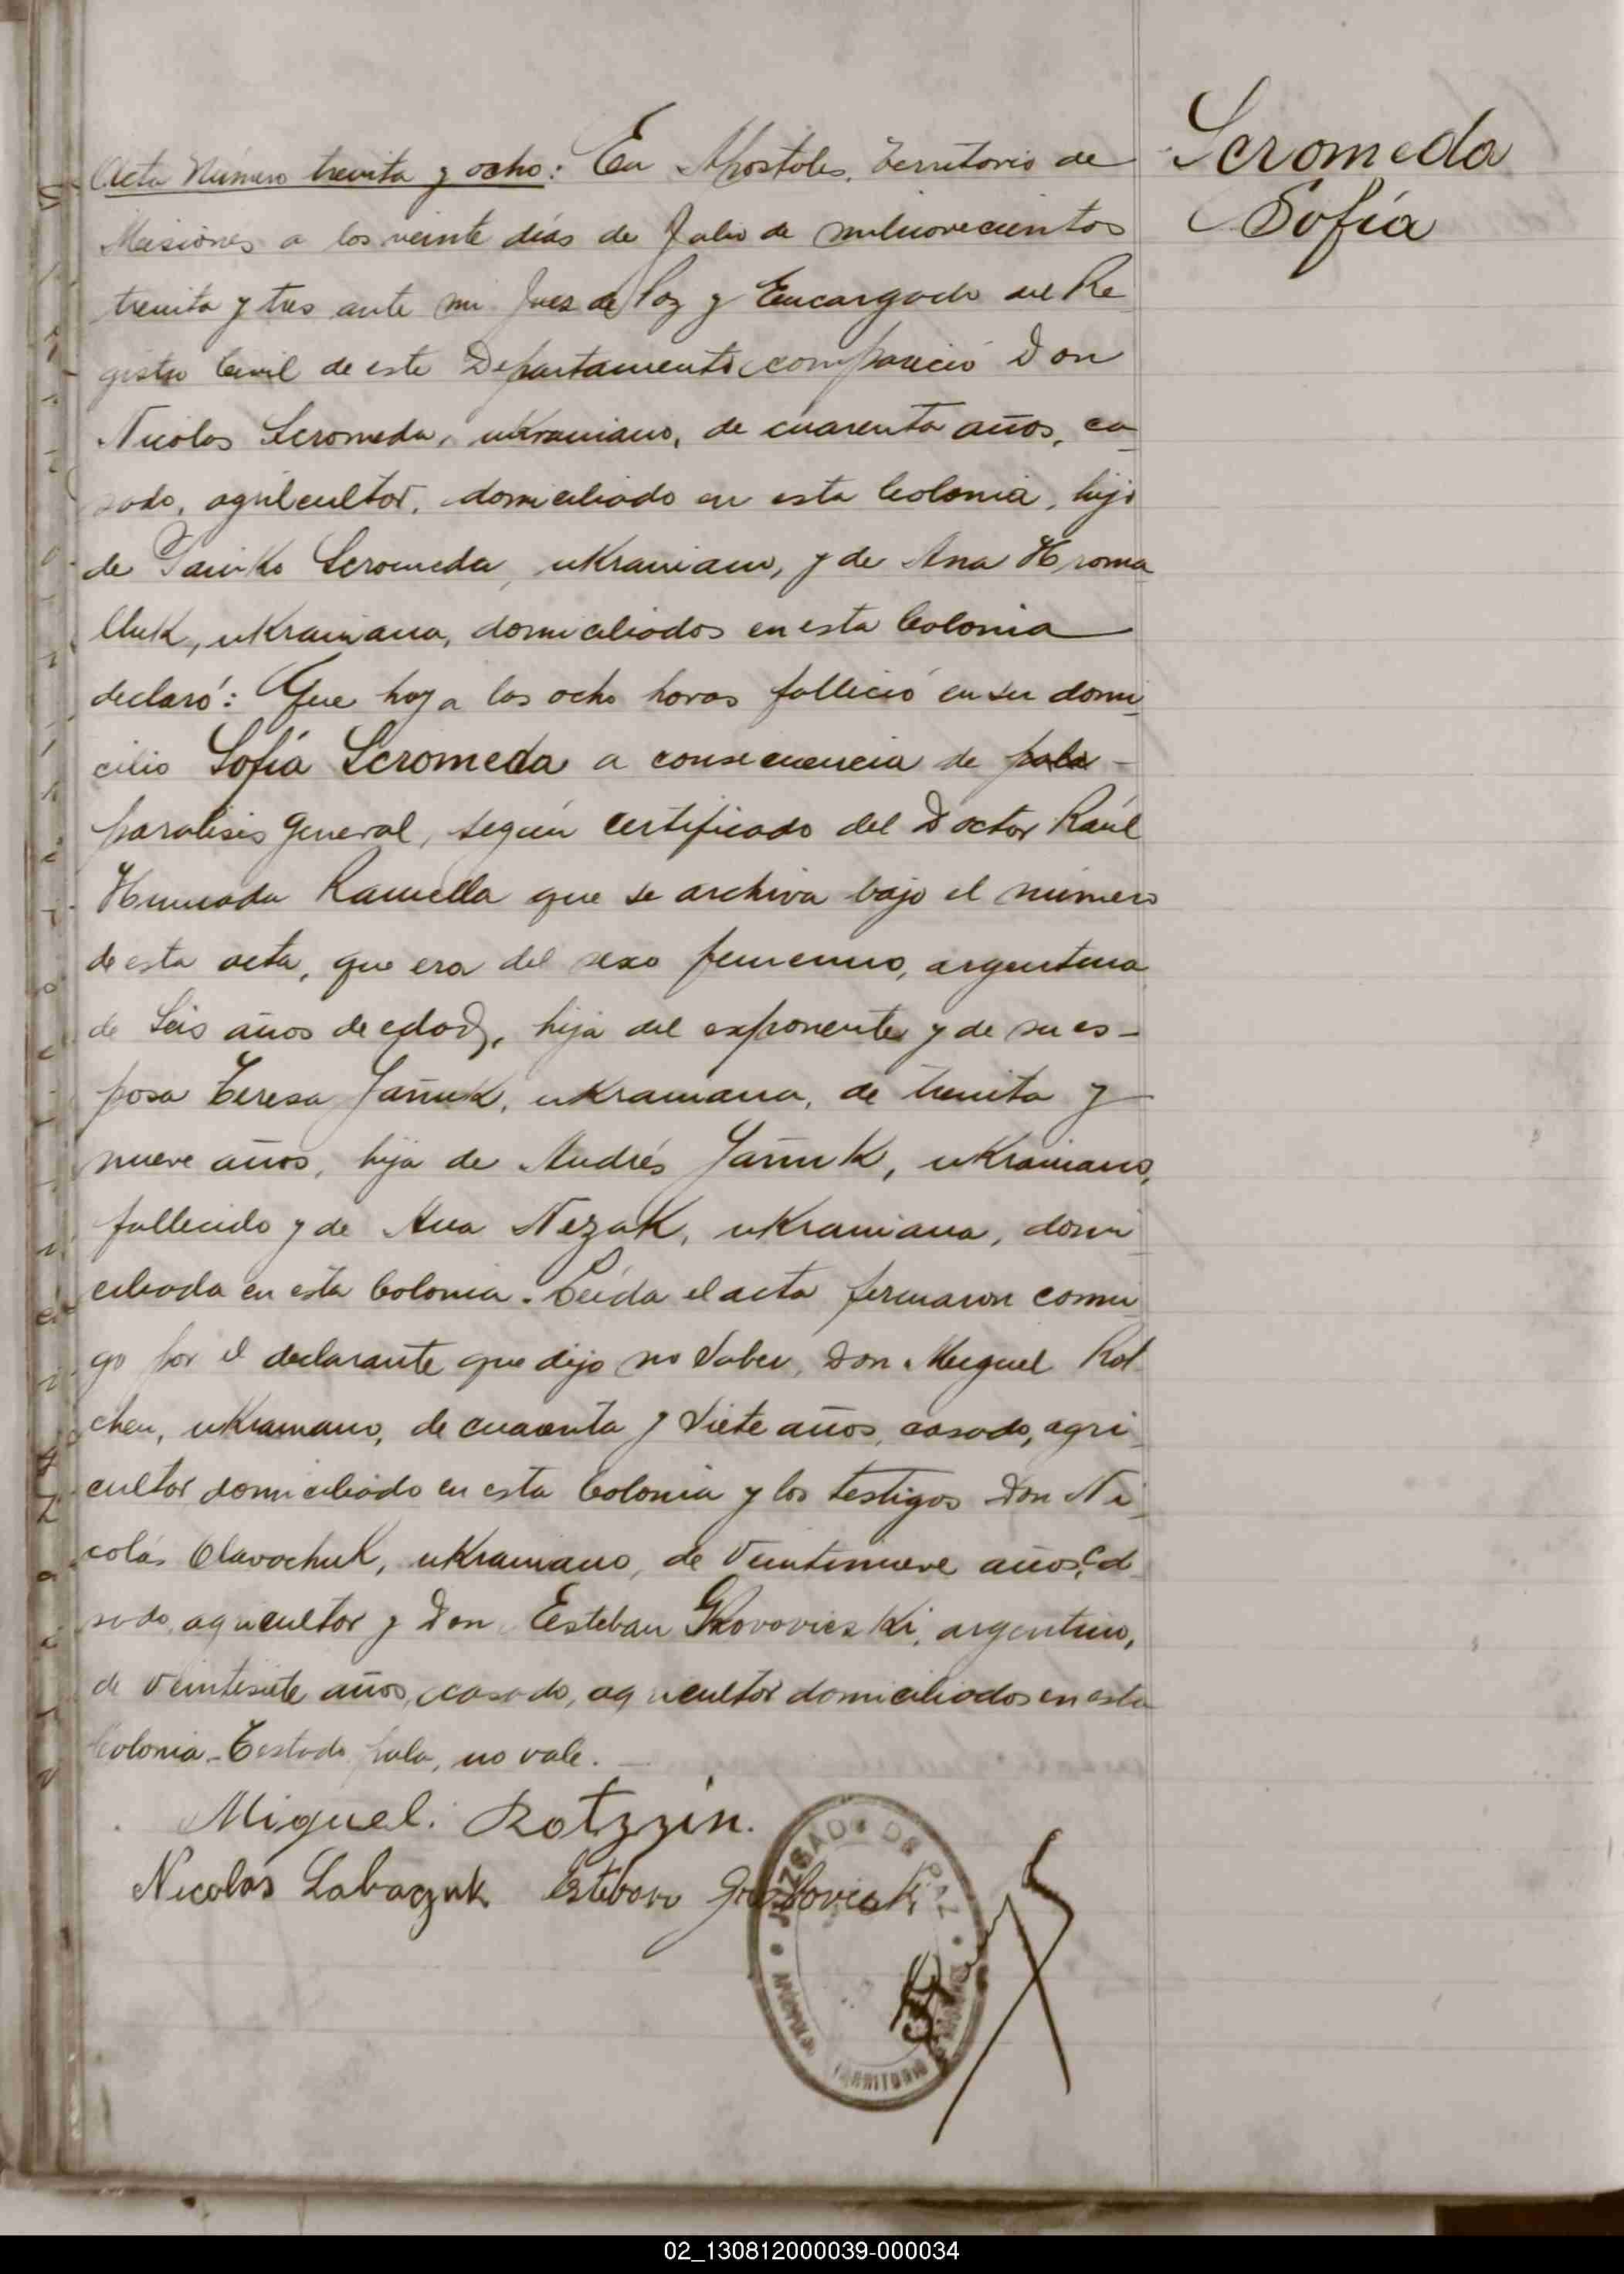 Scromeda
Sofía
Acta Número treinta y ocho: En Apóstoles, Territorio de
Misiones a los veinte días de Julio de milnovecientos
treinta y tres ante mi Juez de Paz y Encargado del Re
gistro Civil de este Departamento compareció Don
Nicolas Scromeda, ukraniano, de cuarenta años, ca
sado, agricultor, domiciliado en esta Colonia, hijo
de Scromeda, ukraniano, y de Ana Hroma
lluk, ukraniana, domiciliados en esta Colonia
declaró: Que hoy a las ocho horas falleció en su domi
cilio Sofía Scromeda a consecuencia de pala
paralisis general, según certificado del Doctor Raúl
Ramella que se archiva bajo el número
de esta acta, que era del sexo femenino, argentina
de Seis años de edad, hija del exponente y de su es-
posa Teresa Jañuk, ukraniana, de treinta y
nueve años, hija de Andrés Jañuk, ukraniano,
fallecido y de Ana Nezak, ukraniana, domi
ciliada en esta Colonia. Leída el acta firmaron conmi
go por el declarante que dijo no Saber, Don Miguel Rot
chen, ukraniano, de cuarenta y Siete años, casado, agri
cultor domiciliado en esta Colonia y los testigos Don Ni
colás Olavochuk, ukraniano, de Veintinueve años, ca
sado, agricultor y Don Esteban argentino,
de Veintisiete años, casado, agricultor domiciliados en esta
Colonia. Testado pala, no vale.
Miguel. Rotzzin.
Nicolas Labaczuk Esteban
JUZGADO DE PAZ
TERRITORIO
02_130812000039-000034